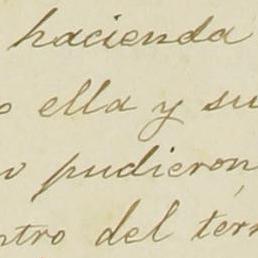 hacienda
ella y su
pudieron
ntro del térr